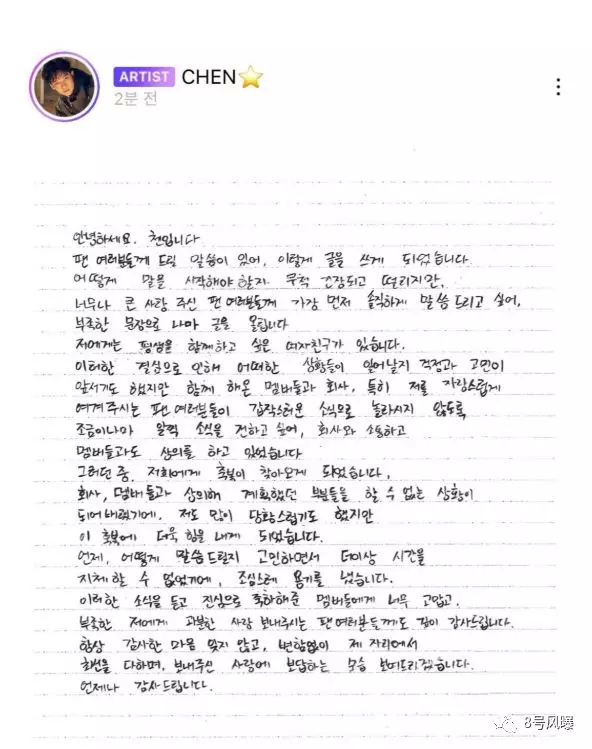 ARTIST CHEN⭐
2분 전
안녕하세요. 첸입니다
팬 여러분들께 드릴 말씀이 있어, 이렇게 글을 쓰게 되었습니다.
어떻게 말을 시작해야 할지 무척 긴장되고 떨리지만,
너무나 큰 사랑 주신 팬 여러분들께 가장 먼저 솔직하게 말씀드리고 싶어,
부족한 문장으로 나마 글을 올립니다
저에게는 평생을 함께하고 싶은 여자친구가 있습니다.
이러한 결심으로 인해 어떠한 상황들이 일어날지 걱정과 고민이
앞서기도 했지만 함께 해온 멤버들과 회사, 특히 저를 자랑스럽게
여겨주시는 팬 여러분들이 갑작스러운 소식으로 놀라시지 않도록
조금이나마 일찍 소식을 전하고 싶어, 회사와 소통하고
멤버들과도 상의를 하고 있었습니다
그러던 중, 저희에게 축복이 찾아오게 되었습니다.
회사, 멤버들과 상의해 계획했던 부분들을 할 수 없는 상황이
되어버렸기에. 저도 많이 당황스럽기도 했지만
이 축복에 더욱 힘을 내게 되었습니다.
언제, 어떻게 말씀드릴지 고민하면서 더이상 시간을
지체할 수 없었기에, 조심스레 용기를 냈습니다.
이러한 소식을 듣고 진심으로 축하해준 멤버들에게 너무 고맙고,
부족한 저에게 과분한 사랑 보내주시는 팬 여러분들께도 깊이 감사드립니다.
항상 감사한 마음 잊지 않고, 변함없이 제 자리에서
최선을 다하며, 보내주신 사랑에 보답하는 모습 보여드리겠습니다.
언제나 감사드립니다.
8号风曝